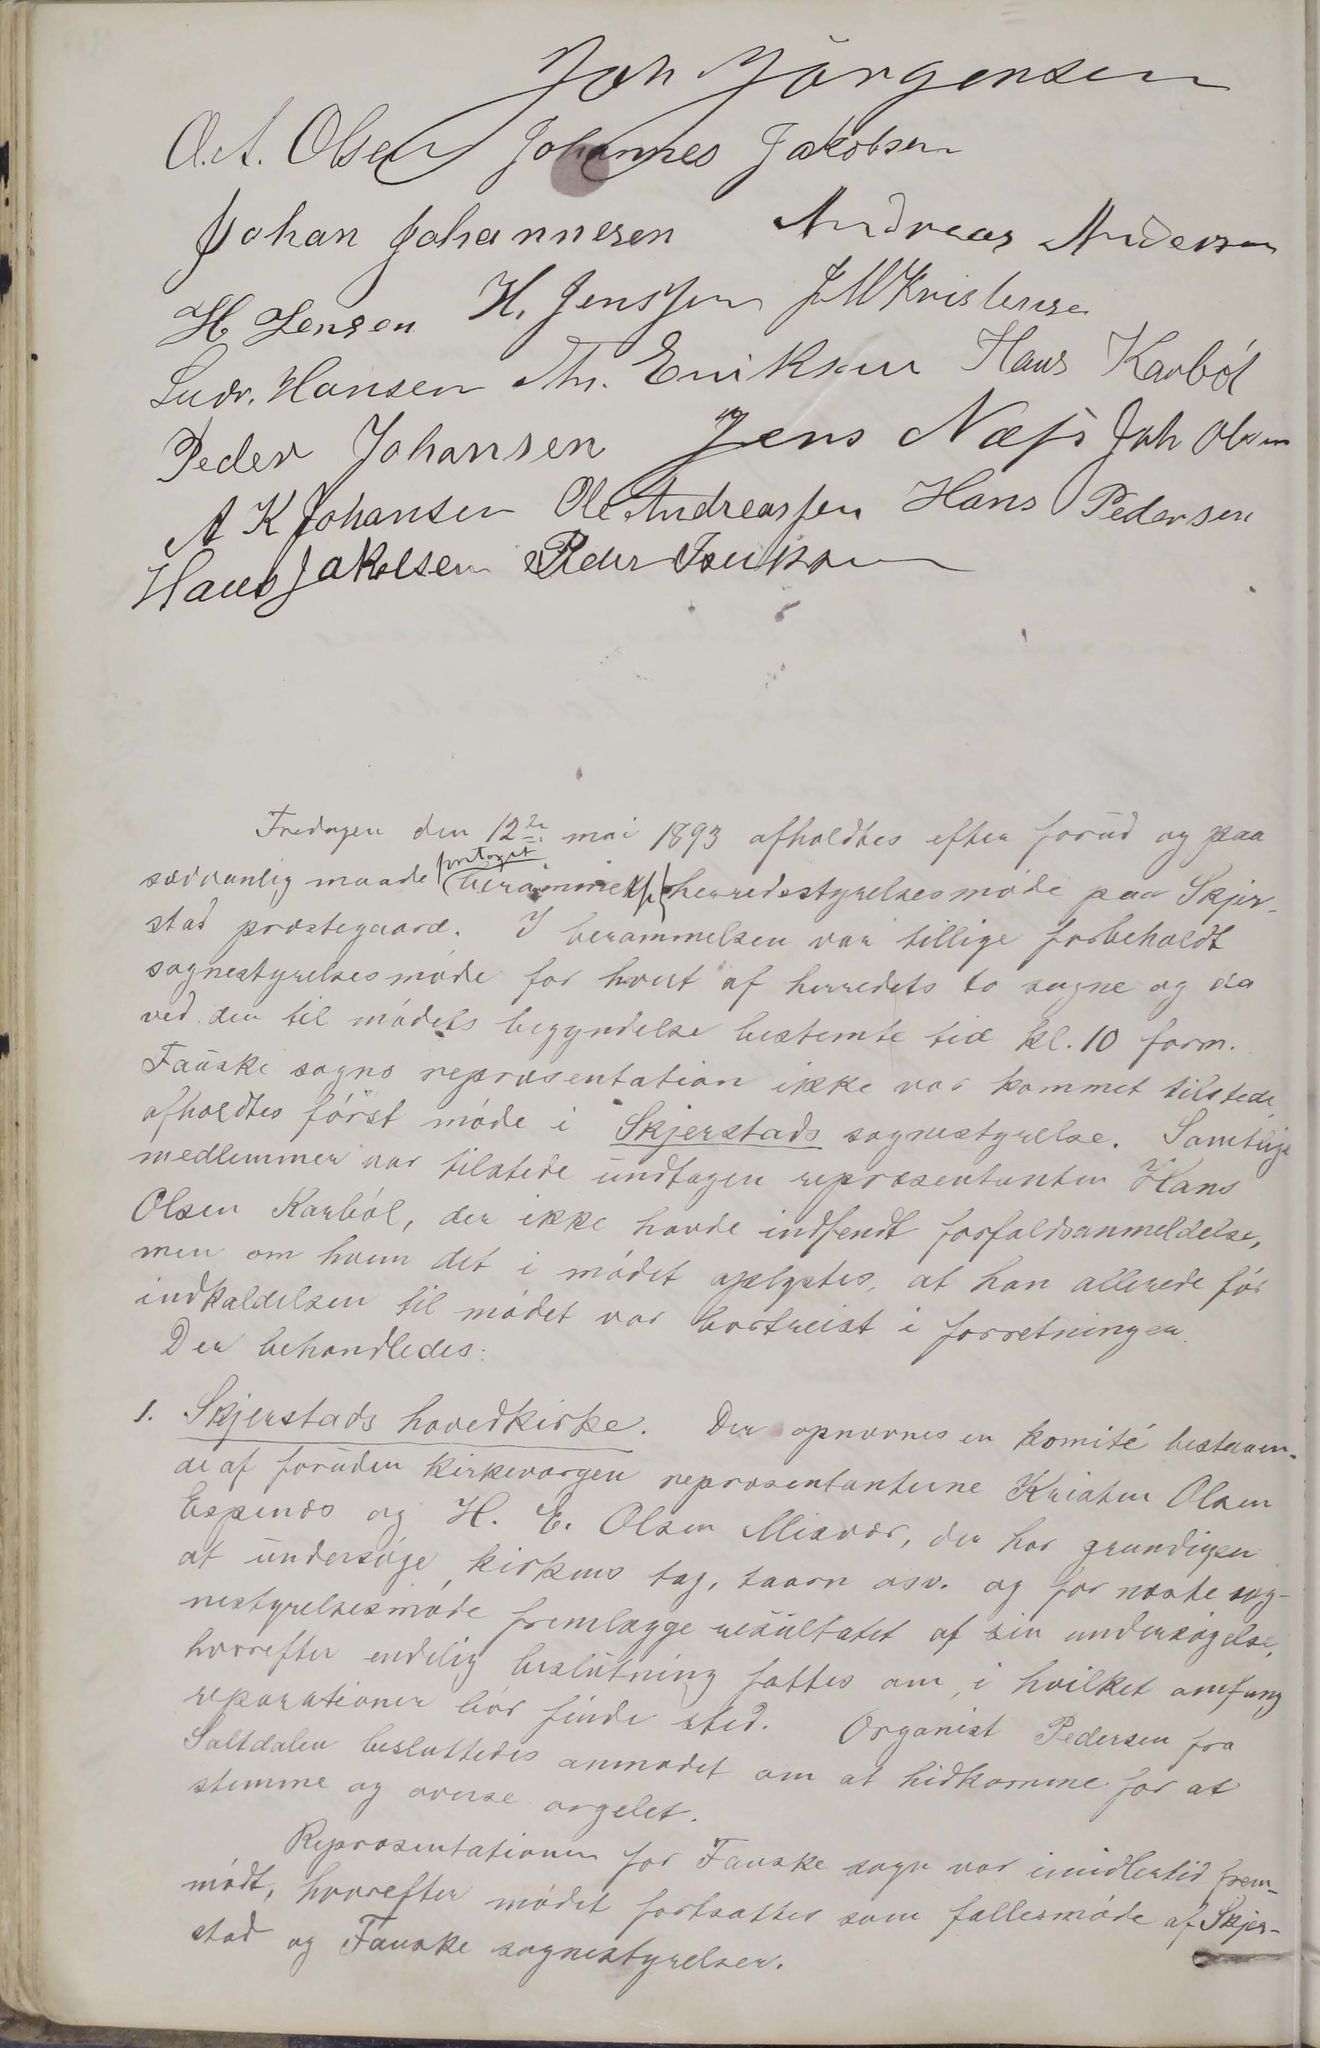 Joh Jörgensen
O. A. Olsen Johannes Jakobsen
Johan Johannesen Andreas Andersen
H. Jensen H. Jenssen J M Kristensen
Ludv. Hansen Th. Eriksen Hans Karból
Peder Johansen Jens Næss Joh Olsen
A K Johansen Ole Andreassen Hans Pedersen
Hans Jakobsen Peder
Fredagen den 12te mai 1893 afholdtes efter forud og paa
sædvanlig maade foretaget berammelse herredsstyrelsesmøde paa Skjer-
stad præstegaard. I berammelsen var tillige forbeholdt
sognestyrelsesmøde for hvert af herredets to sogne og da
ved den til mødets begyndelse bestemte tid kl. 10 form.
Fauske sogns repræsentation ikke var kommet tilstede,
afholdtes først møde i Skjerstads sognestyrelse. Samtlige
medlemmer var tilstede undtagen repræsentanten Hans
Olsen Karból, der ikke havde indsendt forfaldsanmeldelse,
men om hvem det i mødet oplystes, at han allerede før
indkaldelsen til mødet var bortreist i forretninger.
Der behandledes:
1. Skjerstads hovedkirke. Der opnævnes en komité bestaaen-
de af foruden kirkevergen repræsentanterne Kristen Olsen
Espenæs og H. E. Olsen Misvær, der har grundigen
at undersøge kirkens tag, taarn osv. og for næste sog-
nestyrelsesmøde fremlægge resultatet af sin undersøgelse,
hvorefter endelig beslutning fattes om, i hvilket omfang
reparationer bør finde sted. Organist Pedersen fra
Saltdalen besluttedes anmodet om at hidkomme for at
stemme og overse orgelet.
Repræsentationen for Fauske sogn var imidlertid frem-
mødt, hvorefter mødet fortsattes som fællesmøde af Skjer-
stad og Fauske sognestyrelser.